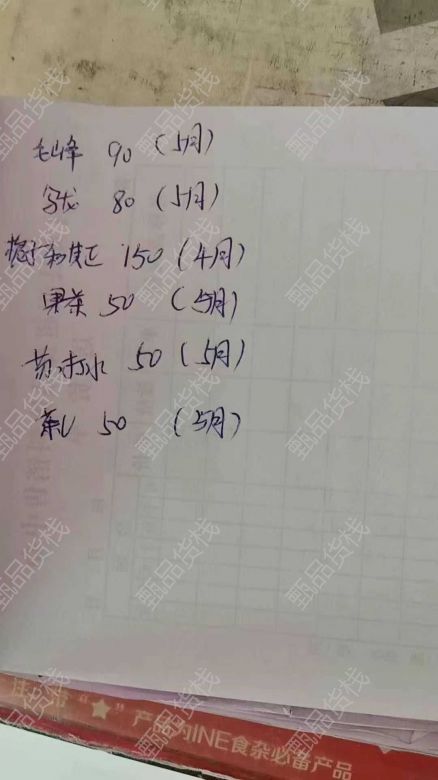 毛峰 90 (5月)
乌龙 80 (5月)
和其正 150 (4月)
果茶 50 (5月)
苏打水 50 (5月)
茶π 50 (5月)
★
产品为INE食杂必备产品
甄品货栈